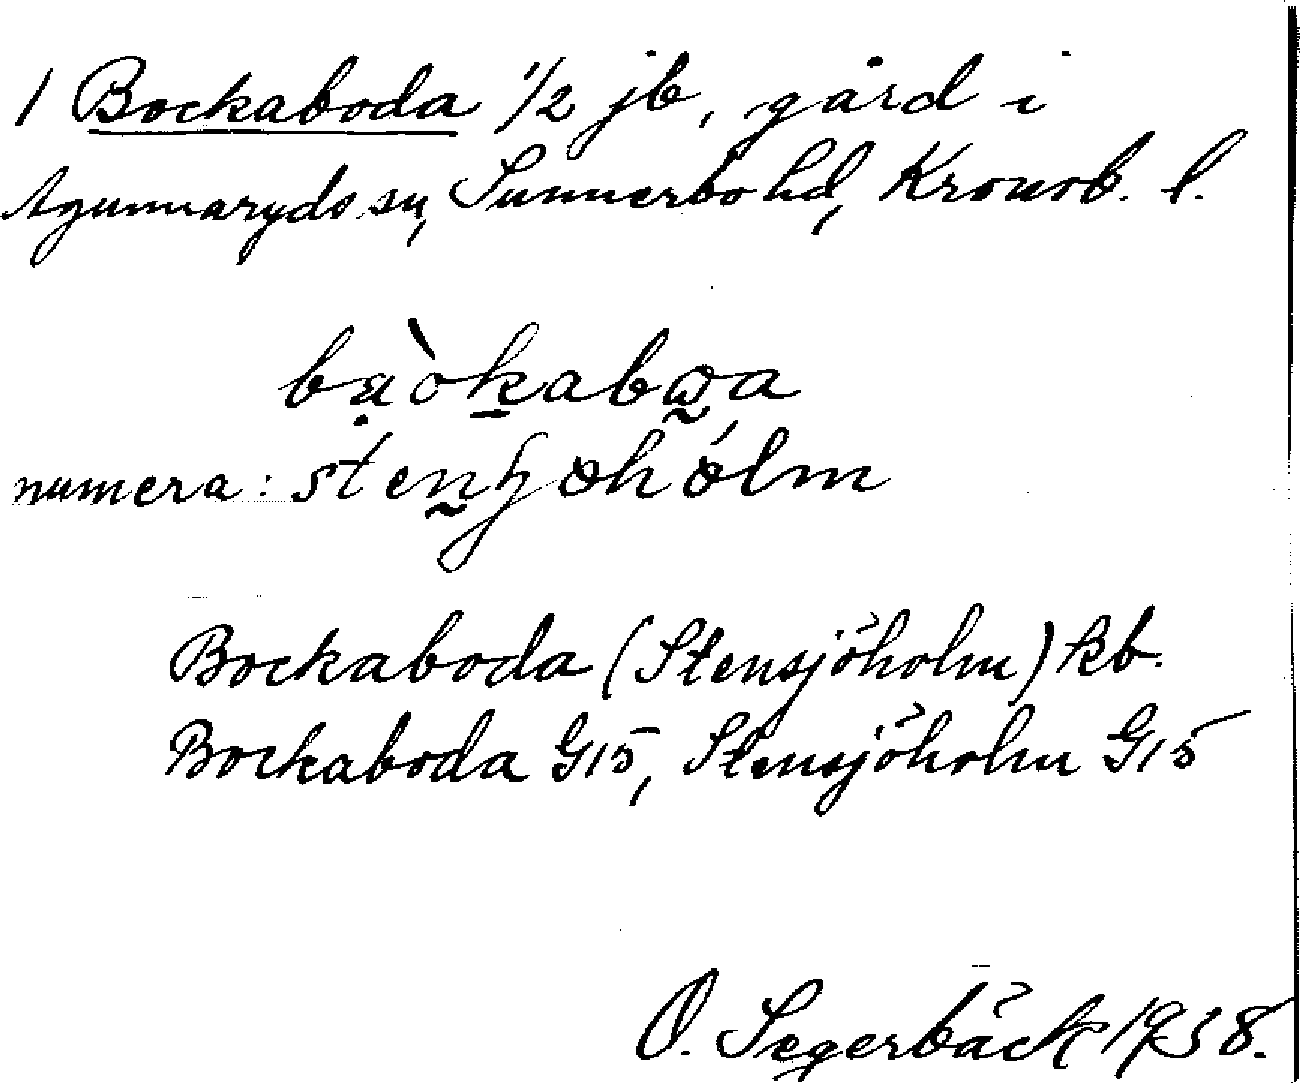 1 Bockaboda 1/2 jb, gård i
Agunnaryds sn, Sunnerbo hd, Kronob. l.
numera:
Bockaboda (Stensjöholm) kb.
Bockaboda G15, Stensjöholm G15
O. Segerbäck 1938.